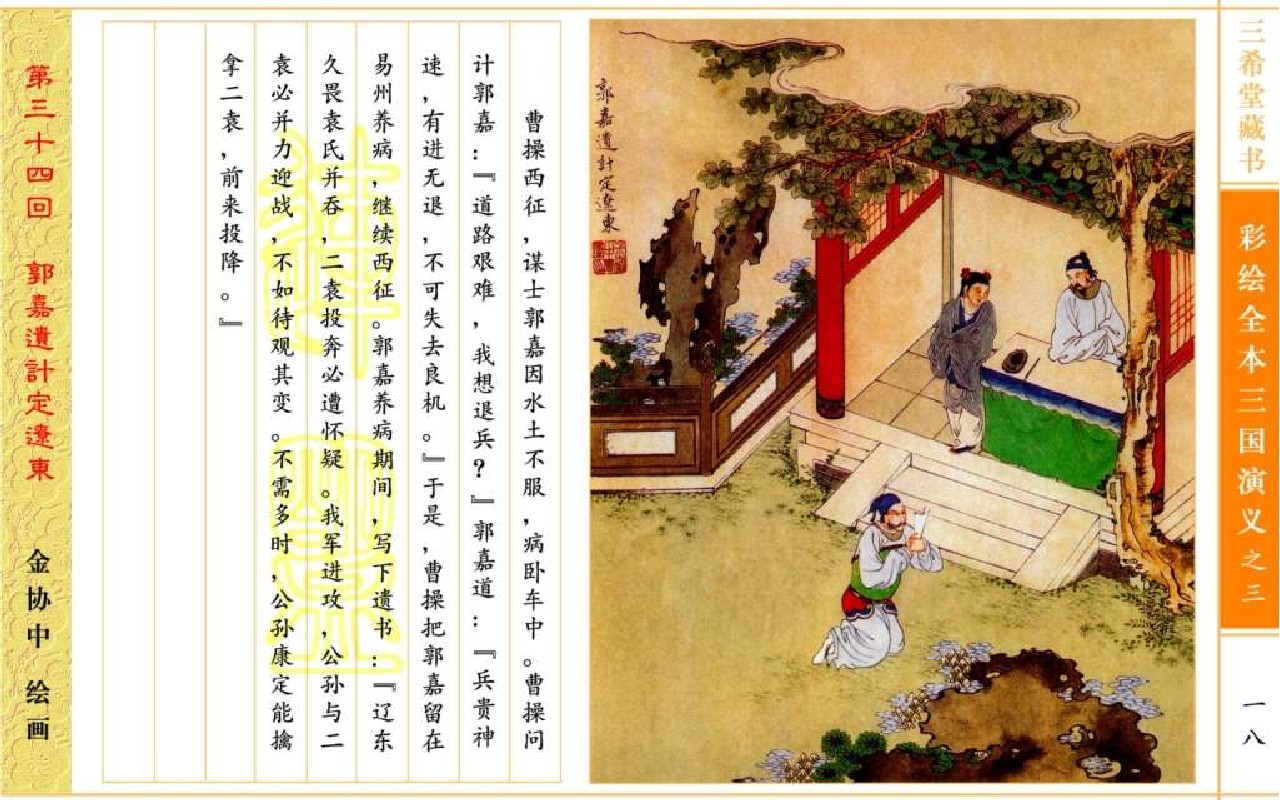 三希堂藏书
彩绘全本三国演义之三
一八
郭嘉遺計定遼東
曹操西征，谋士郭嘉因水土不服，病卧车中。曹操问
计郭嘉：『道路艰难，我想退兵？』郭嘉道：『兵贵神
速，有进无退，不可失去良机。』于是，曹操把郭嘉留在
易州养病，继续西征。郭嘉养病期间，写下遗书：『辽东
久畏袁氏并吞，二袁投奔必遭怀疑。我军进攻，公孙与二
袁必并力迎战，不如待观其变。不需多时，公孙康定能擒
拿二袁，前来投降。』
第三十四回 郭嘉遺計定遼東
金协中 绘画